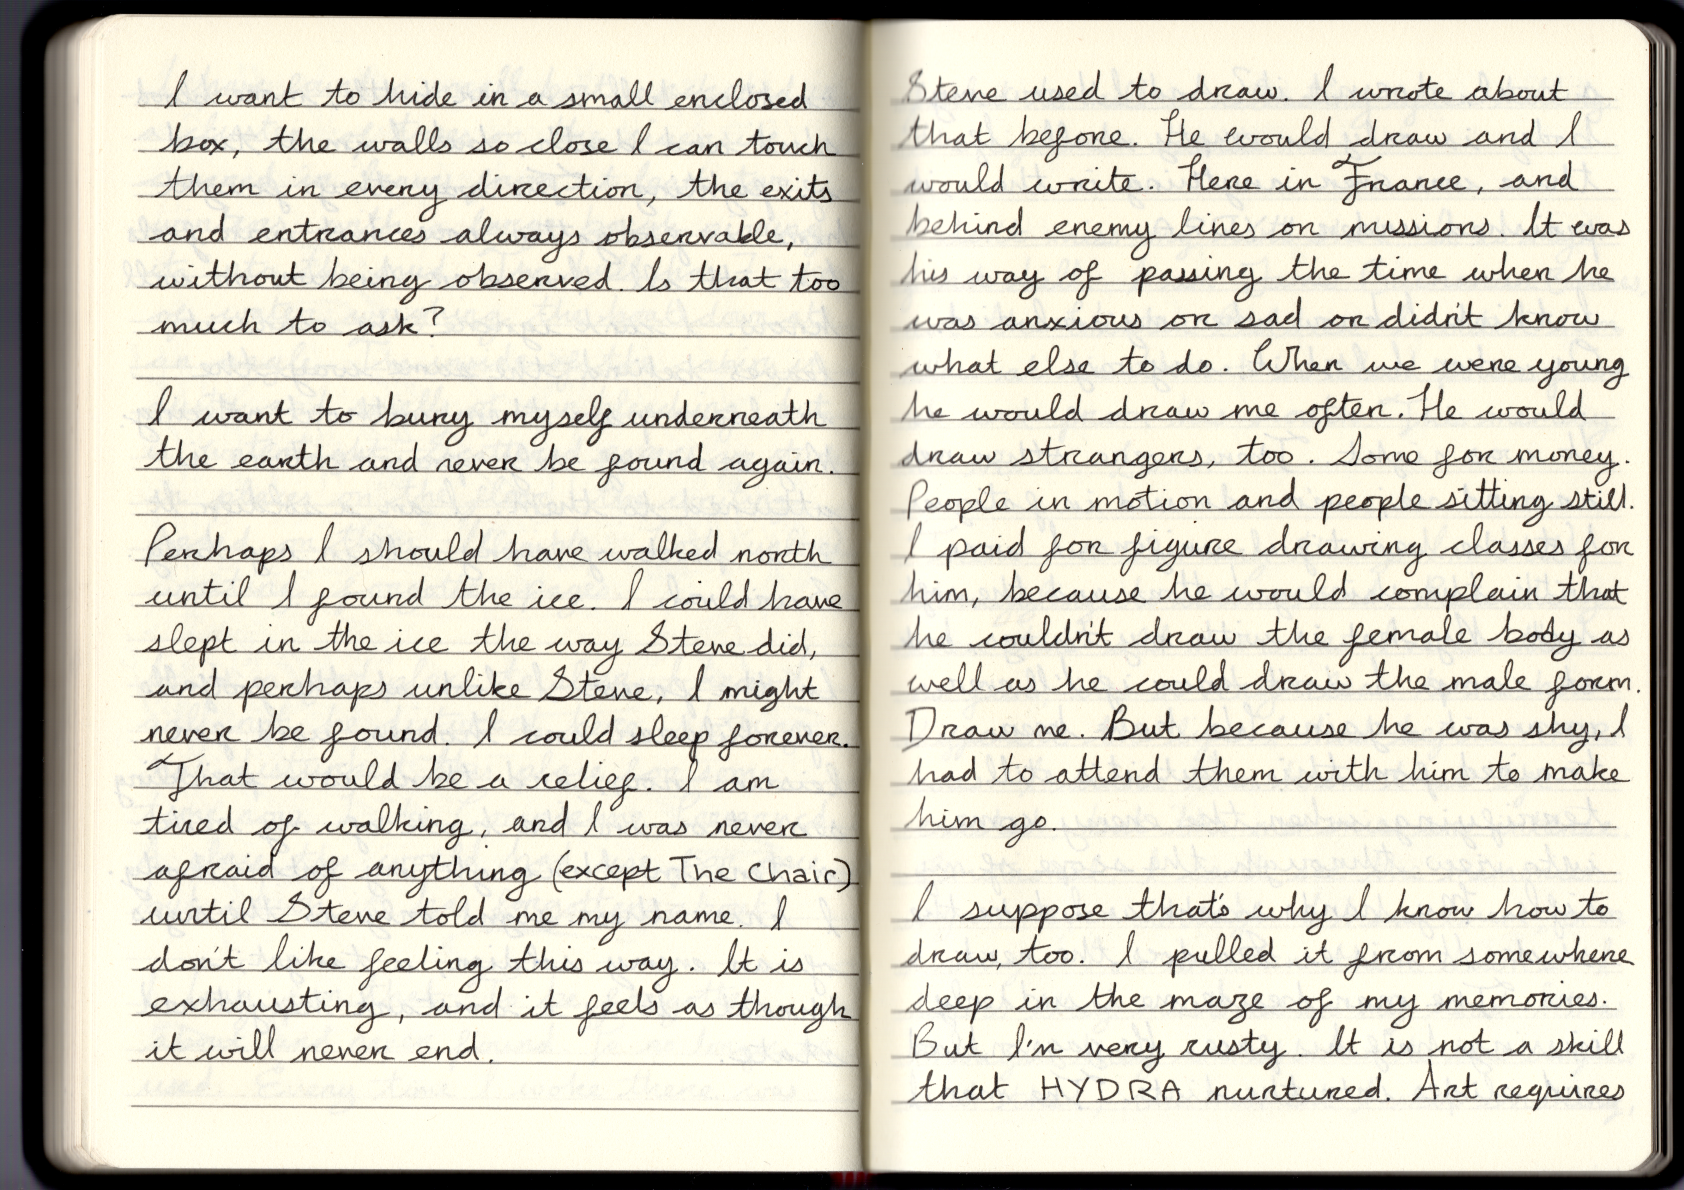 I want to hide in a small enclosed
box, the walls so close I can touch
them in every direction, the exits
and entrances always observable,
without being observed. Is that too
much to ask?
I want to bury myself underneath
the earth and never be found again.
Perhaps I should have walked north
until I found the ice. I could have
slept in the ice the way Steve did,
and perhaps unlike Steve, I might
never be found. I could sleep forever.
That would be a relief. I am
tired of walking, and I was never
afraid of anything (except The Chair)
until Steve told me my name. I
don't like feeling this way. It is
exhausting, and it feels as though
it will never end.
Steve used to draw. I wrote about
that before. He would draw and I
would write. Here in France, and
behind enemy lines on missions. It was
his way of passing the time when he
was anxious or sad or didn't know
what else to do. When we were young
he would draw me often. He would
draw strangers, too. Some for money.
People in motion and people sitting still.
I paid for figure drawing classes for
him, because he would complain that
he couldn't draw the female body as
well as he could draw the male form.
Draw me. But because he was shy, I
had to attend them with him to make
him go.
I suppose that's why I know how to
draw, too. I pulled it from somewhere
deep in the maze of my memories.
But I'm very rusty. It is not a skill
that HYDRA nurtured. Art requires